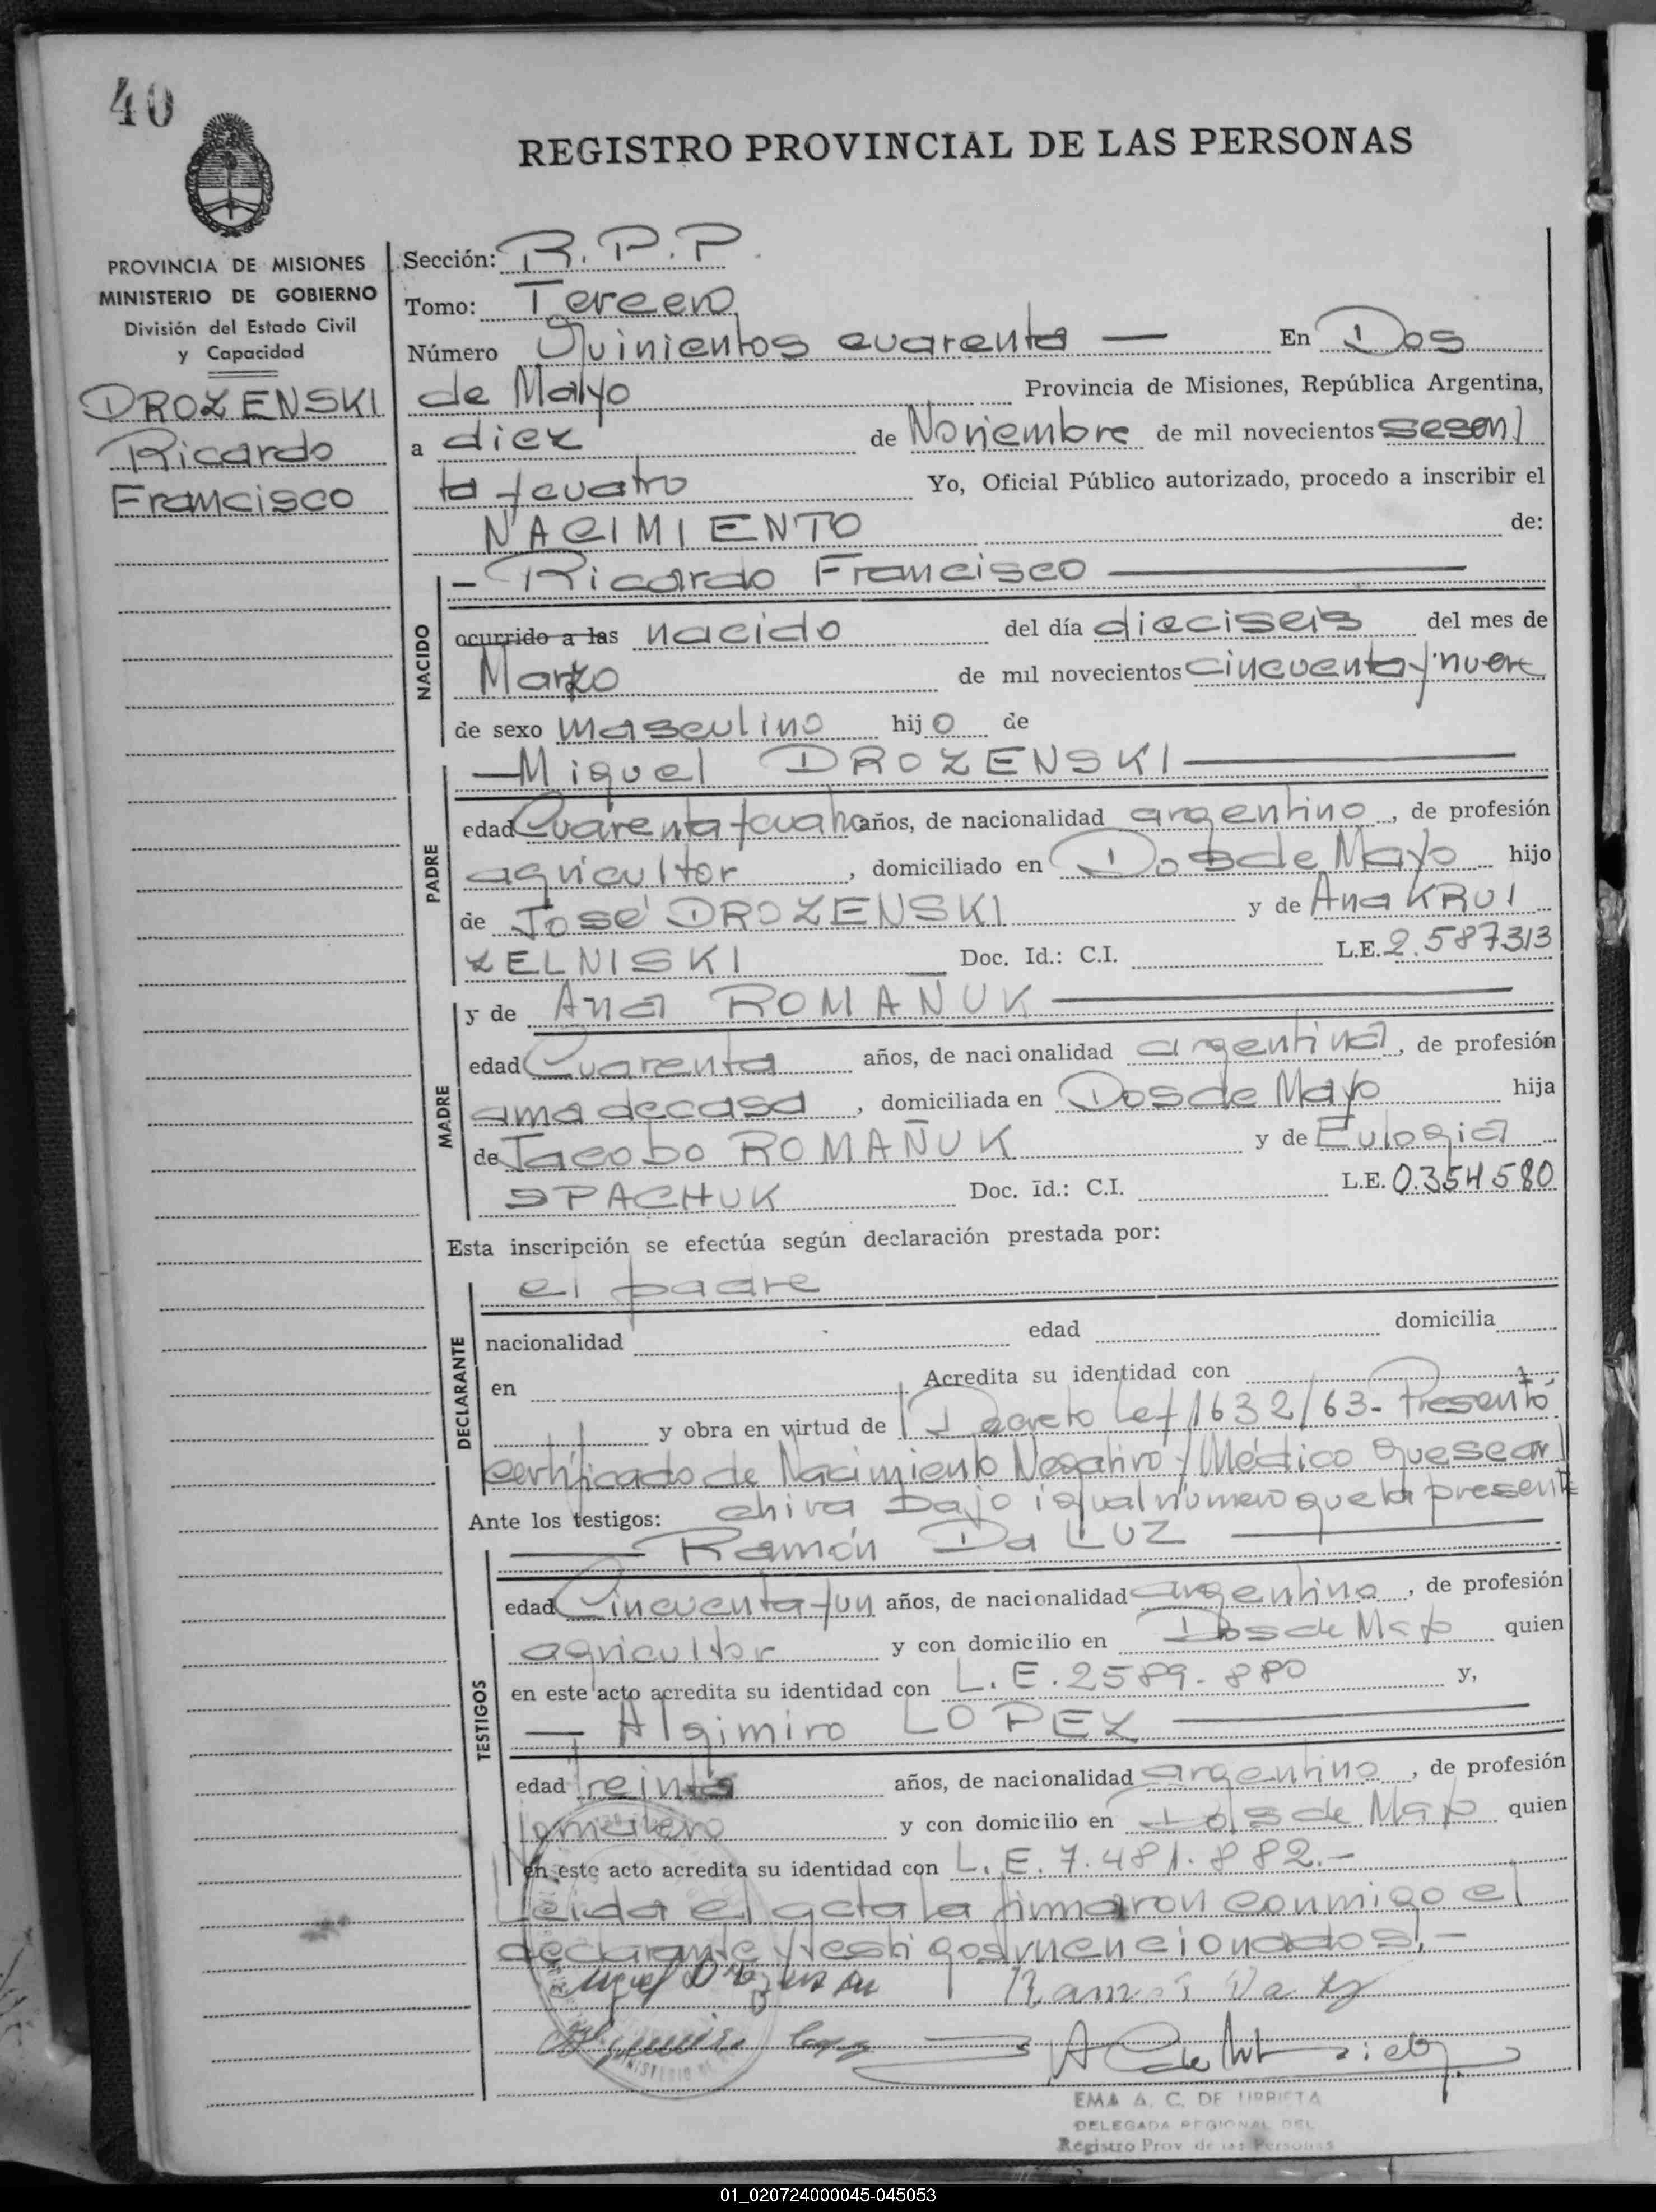 40
REGISTRO PROVINCIAL DE LAS PERSONAS
PROVINCIA DE MISIONES
MINISTERIO DE GOBIERNO
División del Estado Civil
y Capacidad
DROZENSKI
Ricardo
Francisco
Sección: R.P.P.
Tomo: Tercero
Número Quinientos cuarenta — En Dos
de Mayo Provincia de Misiones, República Argentina,
a diez de Noviembre de mil novecientos sesen
ta y cuatro Yo, Oficial Público autorizado, procedo a inscribir el
NACIMIENTO de:
NACIDO
- Ricardo Francisco —
ocurrido a las nacido del día dieciseis del mes de
Marzo de mil novecientos cincuenta y nueve
de sexo masculino hijo de
PADRE
— Miguel DROZENSKI —
edad Cuarenta y cuatro años, de nacionalidad argentino, de profesión
agricultor, domiciliado en Dos de Mayo hijo
de José DROZENSKI y de Ana KRUI
ZELNISKI Doc. Id.: C.I. L.E. 2.587313
MADRE
y de Ana ROMAÑUK —
edad Cuarenta años, de nacionalidad argentina, de profesión
ama de casa, domiciliada en Dos de Mayo hija
de Jacobo ROMAÑUK y de Eulogia
SPACHUK Doc. Id.: C.I. L.E. 0.354580
Esta inscripción se efectúa según declaración prestada por:
DECLARANTE
el padre
nacionalidad edad domicilia
en Acredita su identidad con
y obra en virtud de Decreto Ley 1632/63- Presentó
certificado de Nacimiento Negativo y Médico que se ar
chiva bajo igual número que la presente
Ante los testigos:
TESTIGOS
— Ramón Da LUZ —
edad Cincuenta y un años, de nacionalidad argentino, de profesión
agricultor y con domicilio en Dos de Mayo quien
en este acto acredita su identidad con L.E. 2589.880 y,
— Algimiro LOPEZ —
edad treinta años, de nacionalidad argentino, de profesión
y con domicilio en Dos de Mayo quien
en este acto acredita su identidad con L.E. 7.481.882.-
Leida el acta la firmaron conmigo el
declarante y testigos mencionados.-
EMA A. C. DE URRIETA
DELEGADA REGIONAL DEL
Registro Prov de las Personas
01_020724000045-045053